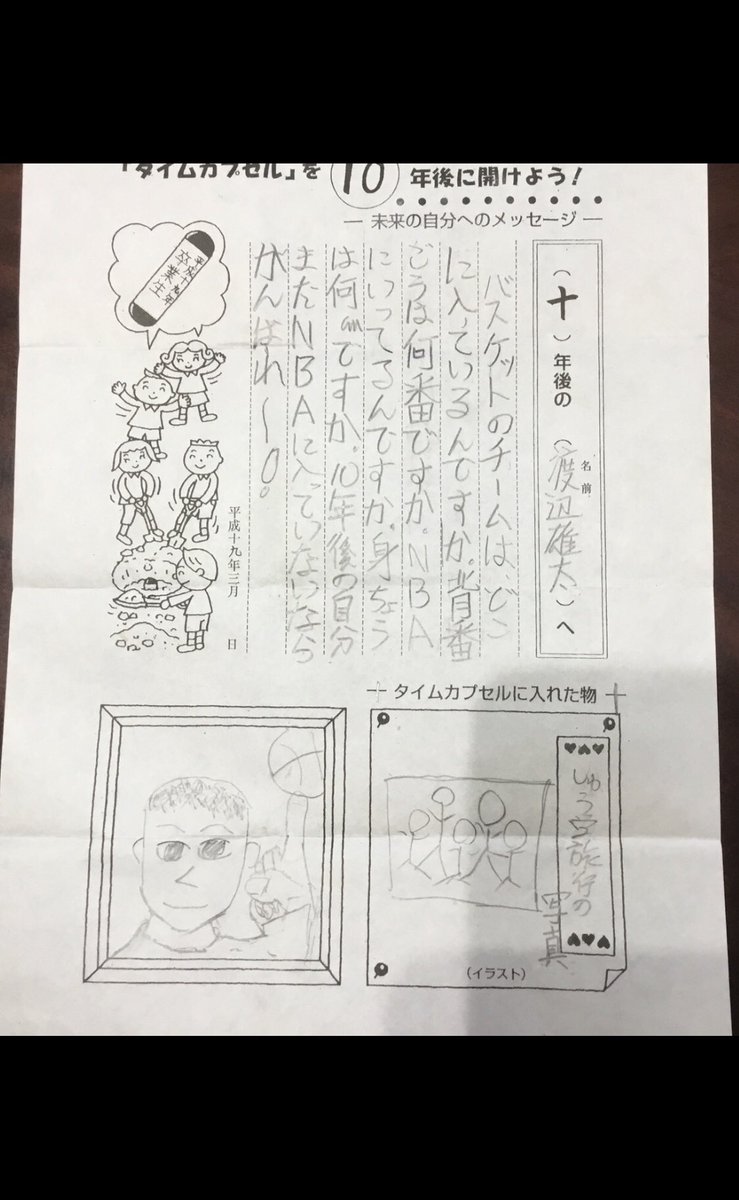 「タイムカプセル」を10年後に開けよう!
未来の自分へのメッセージ
(十)年後の(名前 渡辺雄太)へ
バスケットのチームは、どこ
に入っているんですか。背番
ごうは何番ですか。NBA
にいってるんですか。身ちょう
は何cmですか。10年後の自分
まだNBAに入っていないなら
がんばれ〜!!
平成十九年三月 日
平成十八年
卒業生
タイムカプセルに入れた物
しゅう学旅行の
写真
(イラスト)